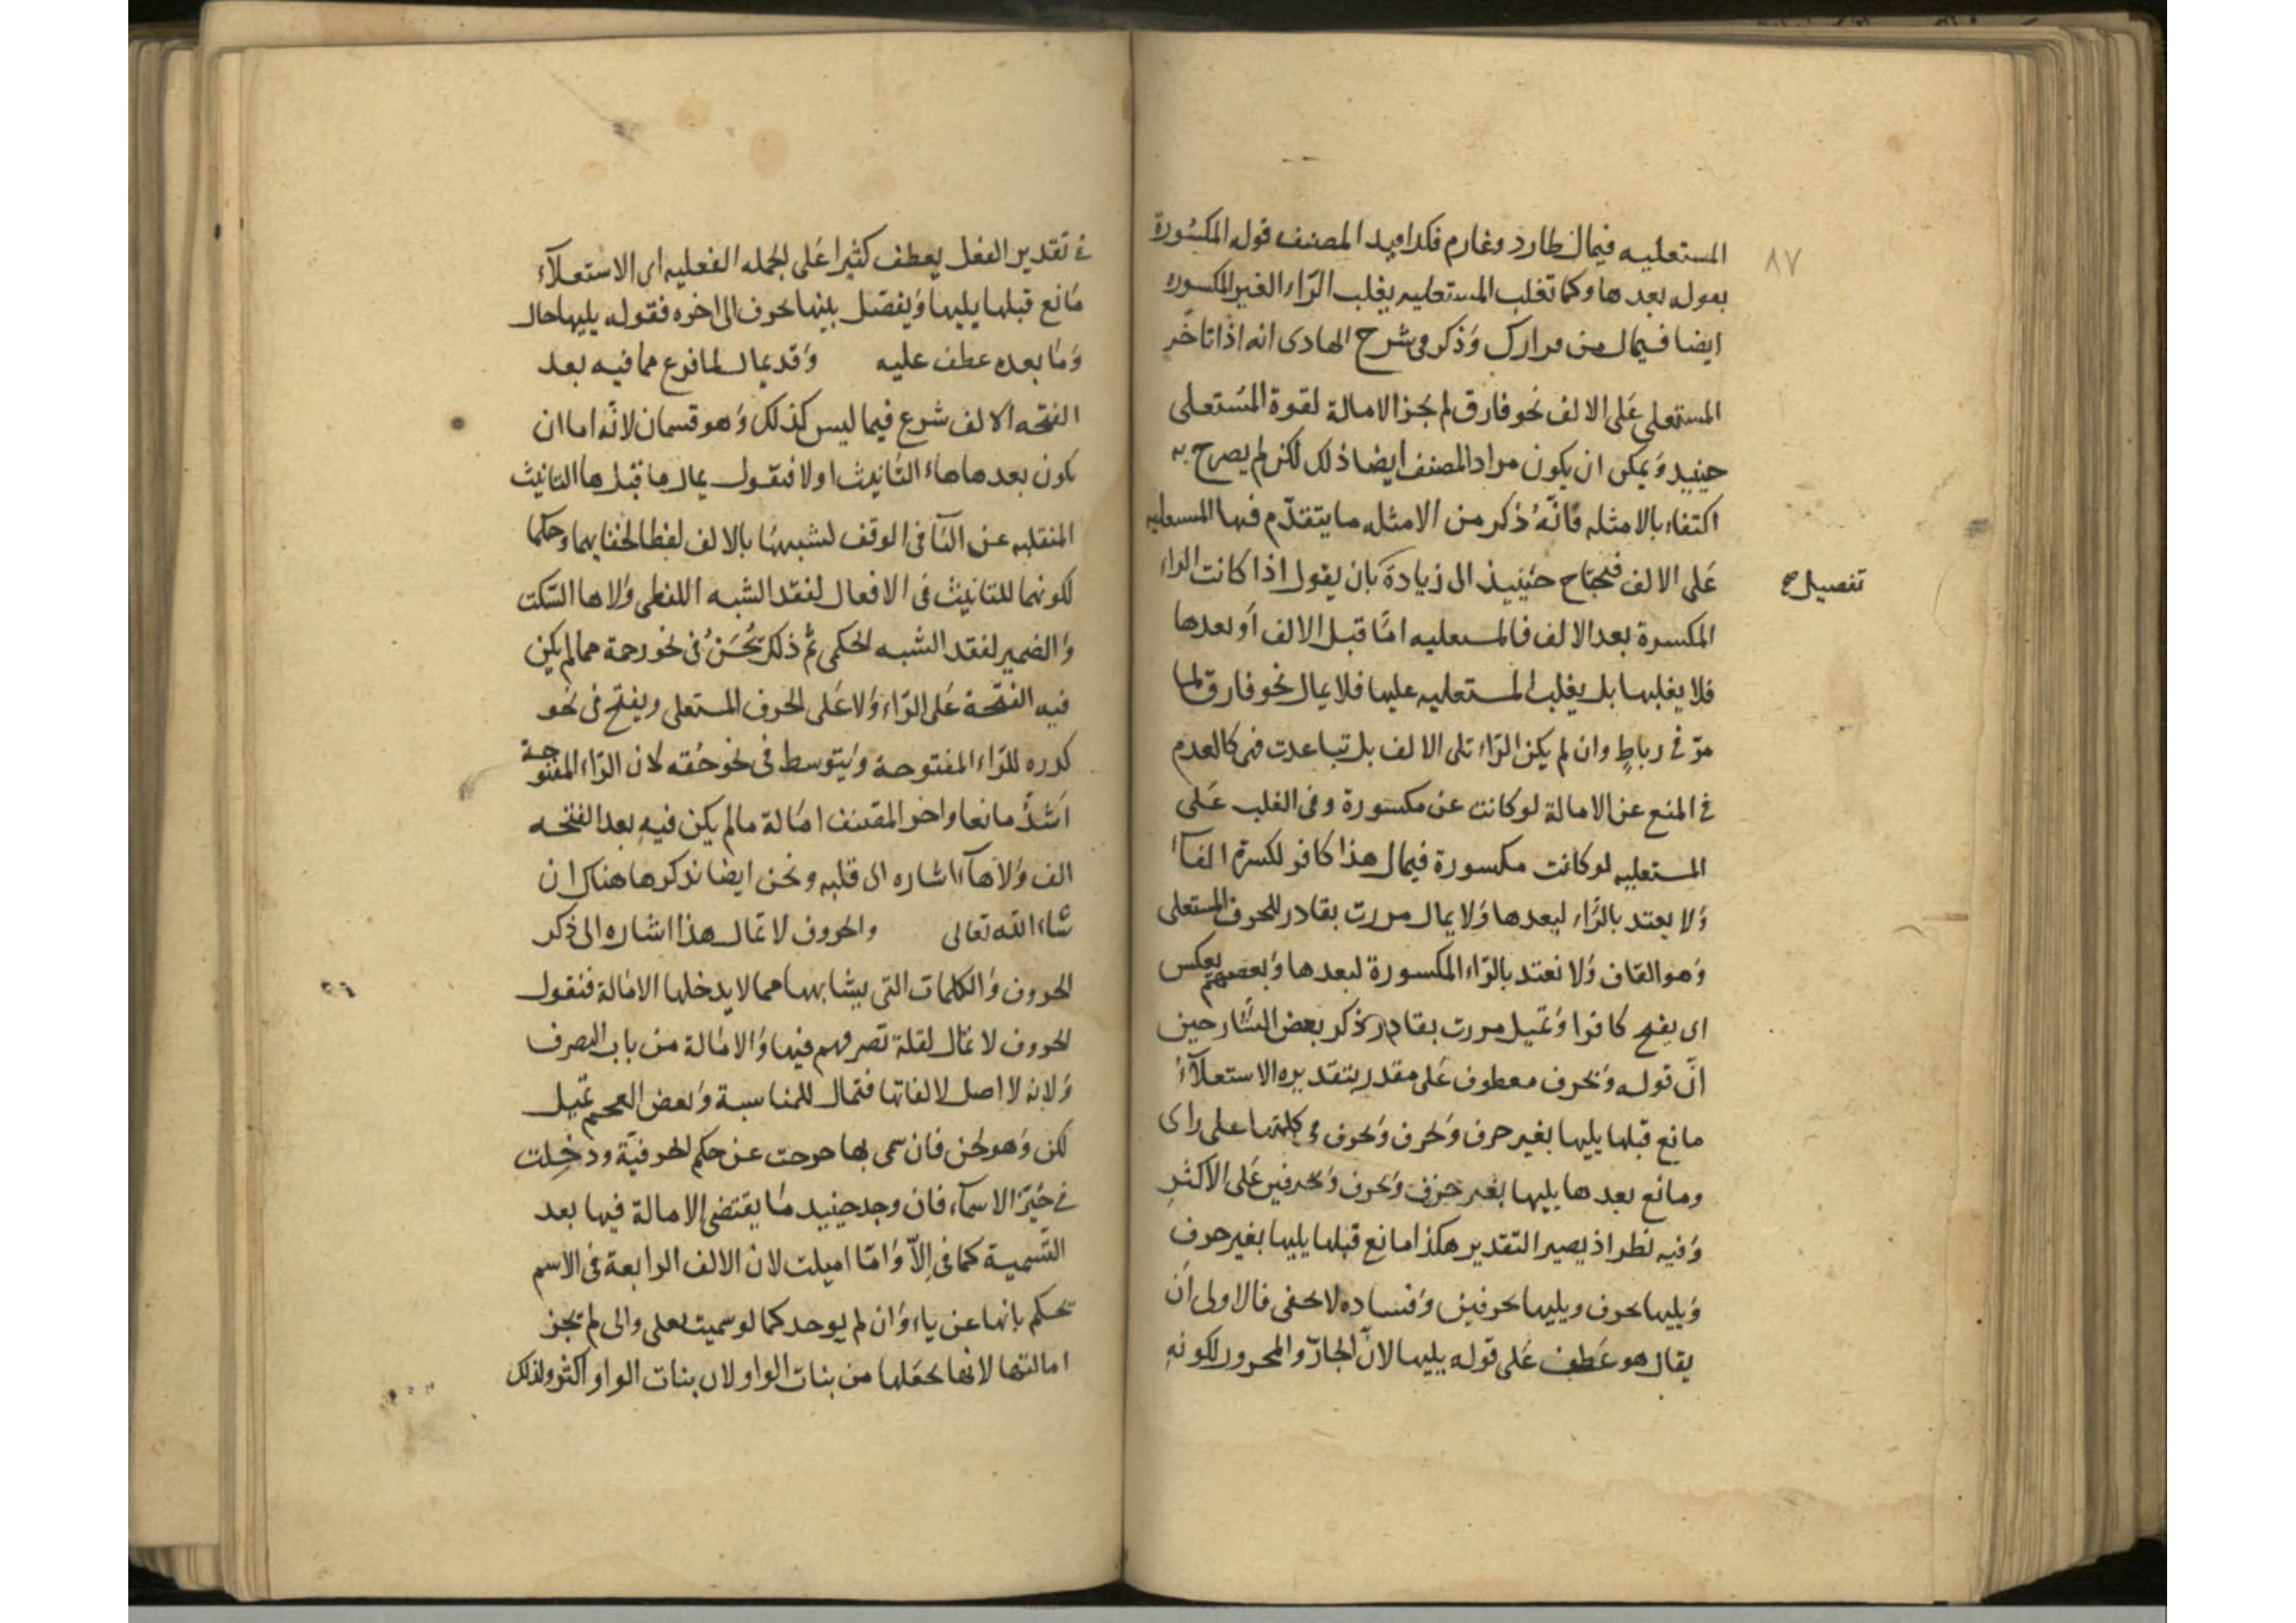 ٨٧
المستعليه فيمال طارد وغارم فكذا قيد المصنف قوله المكسورة
بقوله بعدها وكما تغلب المستعليه يغلب الراء الغير المكسوره
ايضا فيمال من قرارك وَذكر فى شرح الهادى انه اذا تاخّر
المستعلى عَلى الالف نحو فارق لم يجز الامالة لقوة المُستعلى
حينيد وَيمكن ان يكون مراد المصنف ايضا ذلك لكن لم يصرح به
اكتفاء بالامثله فانّهُ ذكر من الامثله ما يتقدّم فيها المستعليه
عَلى الالف فيحتاج حينيذ الى زيادة تفصيل بان يقول اذا كانت الراء
تفصيل صح
المكسرة بعد الالف فالمستعليه امّا قبل الالف أو بعدها
فلا يغلبها بل يغلب المستعليه عليها فلا يمال نحو فارق لما
مرّ فى رباطٍ وان لم يكن الرّاء تلى الالف بل تباعدت فهى كالعدم
فى المنع عن الامالة لو كانت غير مكسورة وفى الغلب عَلى
المستعليه لو كانت مكسورة فيمال هذا كافر لكسرة الفآء
وَلا يعتد بالرَّاء لبعدها وَلا يمال مررت بقادر للحرف المستعلى
وَهو القاف وَلا نعتد بالرّاء المكسورة لبعدها وَبعضهم يعكس
اى يفتح كافرا وَيميل مررت بقادر وذكر بعض الشّارحين
انّ قوله وَبحرف معطوف عَلى مقدر بتقديره الاستعلآءُ
مانع قبلها يليها بغير حرف وَبحرف وَبحرف فى كلمتها على راى
ومانع بعدها يليها بغير حرف وَبحرف وَبحرفين عَلى الاكثر
وَفيه نظر اذ يصير التقدير هكذا مانع قبلها يليها بغير حرف
وَيليها بحرف ويليها بحرفين وَفساده لا يخفى فالاولى انّ
يقال هو عَطف عَلى قوله يليها لانّ الجارّ والمجرور لكونهِ
فى تقدير الفعل يعطف كثيرا عَلى الجمله الفعليه اى الاستعلآء
مَانع قبلها يليها وَيفصَل بينها بحرف الى اخره فقوله يليها حال
وَمَا بعده عطف عليه وَقد يمال لما فرع مما فيه بعد
الفتحه الالف شرع فيما ليس كذلك وَهو قسمان لانّه اما ان
يكون بعدها هاء التّانيث او لا فنقول يمال ما قبل ها التانيث
المنقلبه عن التآ فى الوقف لشبهها بالالف لفظا لخفايهما وحكما
لكونهما للتانيث فى الافعال لفقد الشبه اللفظى وَلا ها السّكت
وَالضمير لفقد الشبه الحكمى ثم ذلك يَحْسَنُ فى نحو رحمة مما لم يكن
فيه الفتحة عَلى الرّاء وَلا عَلى الحرف المستعلى ويفتح فى نحو
كدره للرّاء المفتوحة وَيتوسط فى نحو حُقه لان الرّاء المفتوحة
اَشدُّ مانعا واخر المصنف امَالة ما لم يكن فيهِ بعد الفتحه
الف وَلا هآء اشاره الى قلبه ونحن ايضا نذكرها هناك ان
شاء الله تعالى والحروف لا تمال هذا اشاره الى ذكر
الحروف وَالكلمات التى يشابهها مما لا يدخلها الامَالة فنقول
الحروف لا تمال لقلة تصرفهم فيها وَالامَالة من باب التصرف
وَلانه لا اصل لالفاتها فتمال للمناسبة وَبعض العجم تميل
لكن وَهو لحن فان سمى بها خرجت عن حكم الحرفيّة ودخلت
فى حَيّز الاسمآء فان وجد حينيد مَا يقتضى الامالة فيها بعد
التّسمية كما فى اِلّا وَامّا اميلت لان الالف الرابعة فى الاسم
يحكم بانها عن ياء وَان لم يوجد كما لو سميت بعلى والى لم تجز
امالتها لانها نجعلها من بنات الواو لان بنات الواو اكثر ولذلك